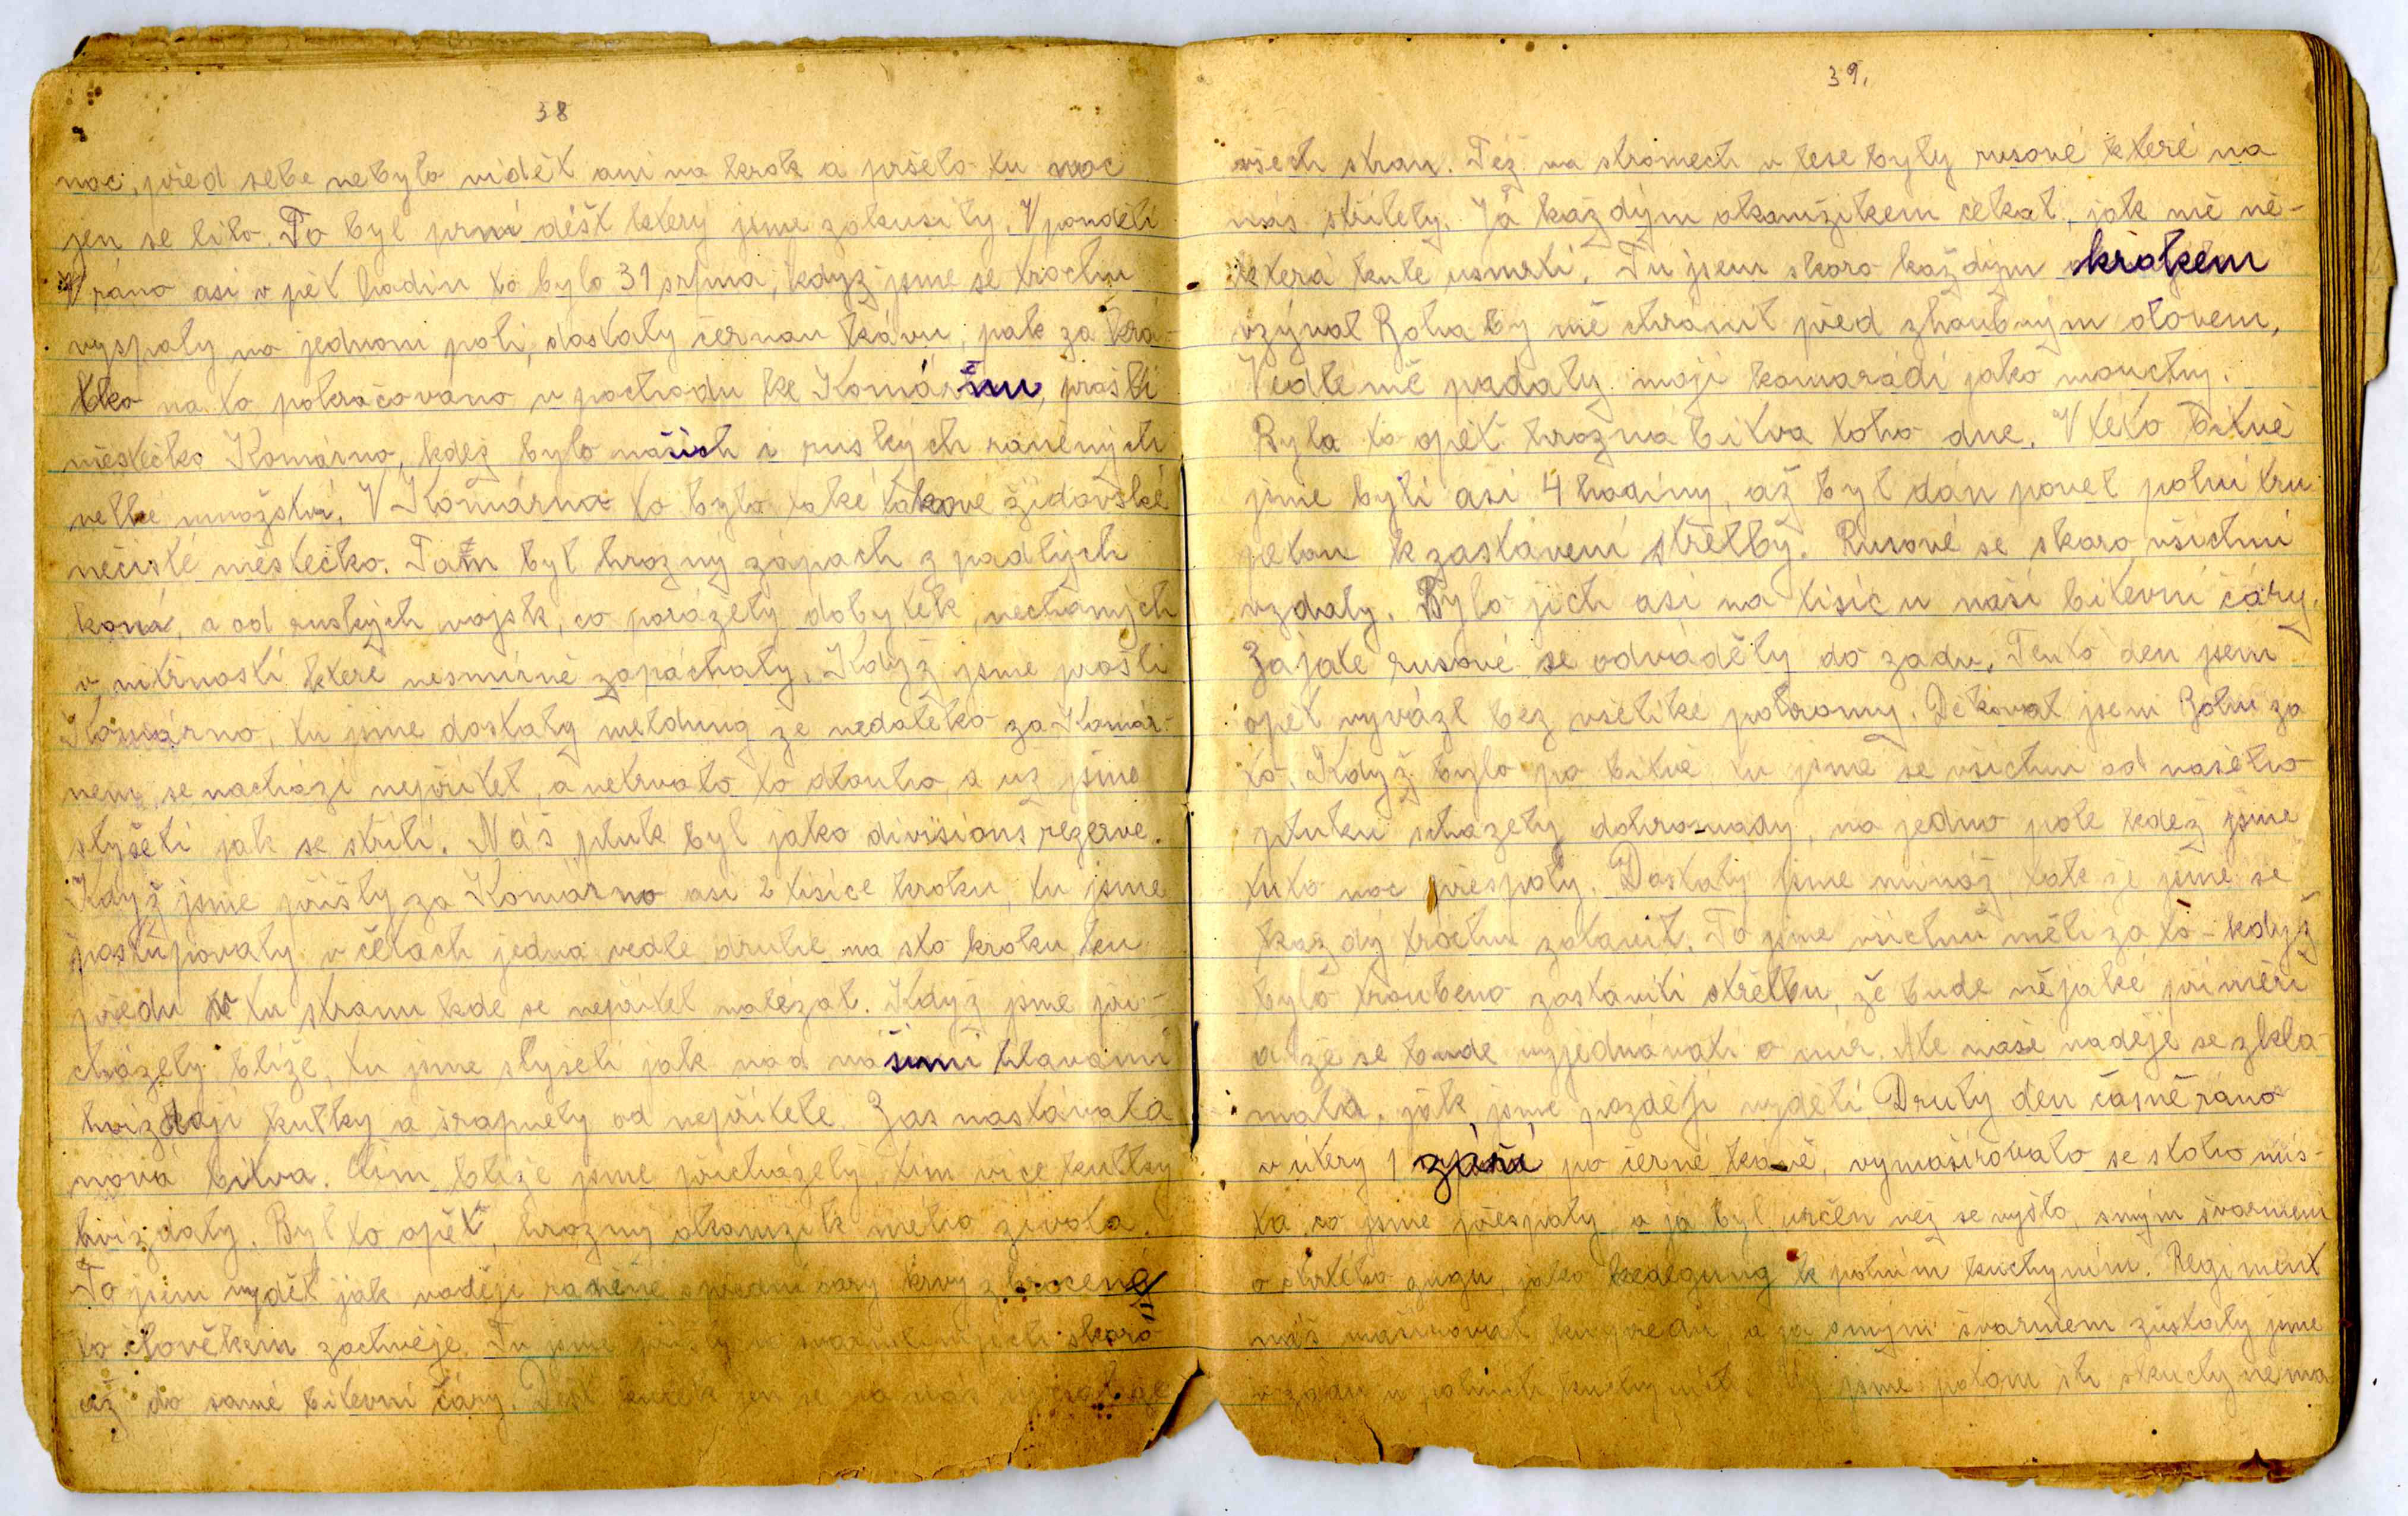 38
noc, před sebe nebylo vidět ani na krok a pršelo tu noc
jen se lilo. To byl prvni déšt ktery jsme zakusily. V pondeli
ráno asi v pět hodin to bylo 31 srpna, když jsme se trochu
vyspaly na jednom poli, dostaly černau kávu, pak za krá-
tko na to pokračovano v pochodu ke Komárnu, prošli
městečko Komárno, kdež bylo našich i ruských raněných
velké množství. V Komárna to bylo také takové židovské
nečisté městečko. Tam byl hrozný zápach z padlých
koná, a od ruských vojsk, co porážely dobytek, nechaných
vnitřnosti které nesmírně zapáchaly. Když jsme prošli
Komárno, tu jsme dostaly meldung že nedaleko za Komár-
nem, se nachází nepřitel, a netrvalo to dlouho a uz jsme
slyšeli jak se střílí. Náš pluk byl jako divisions rezerve.
Když jsme přišly za Komárno asi 2 tisíce kroku, tu jsme
postupovaly v četach jedna vedle druhé na sto kroku ku
předu tu stranu kde se nepřitel nalézal. Když jsme při-
cházely blíže, tu jsme slyšeli jak nad našimi hlavami
hvizdají kulky a šrapnely od nepřitele. Zas nastávala
nová bitva. Čím blíže jsme přicházely, tím více kulky
hvizdaly. Byl to opět, hrozny okamzik mého zivota.
To jsem vyděl jak voději raněné z přední čary krvy zbrocené
to člověkem zachvěje. Tu jsme přišly se švarmlinijech skoro
až do samé bitevní čáry. Déšt kulek jen se na nás ze
39.
všech stran. Též na stromech v lese byly rusové které na
nás střílely. Já každým okamžikem čekal, jak mě ně-
která kule usmrtí. Tu jsem skoro každým krokem
vzýval Boha by mě chránil před zhoubným olovem.
Vedle mě padaly moji komarádi jako mouchy.
Byla to opět hrozná bitva toho dne. V této bitvě
jsme byli asi 4 hodiny, až byl dán povel polni tru
petou k zastavení střelby. Rusové se skoro všichni
vzdaly. Bylo jich asi na tisíc u naši bitevní čáry.
Zajale rusové se odváděly do zadu. Tento den jsem
opět vyvázl bez všeliké pohromy. Děkoval jsem Bohu za
to. Když bylo po bitvě, tu jsme se všichni od našeho
pluku scházely dohromady, na jedno pole kdež jsme
tuto noc přespaly. Dostaly jsme mináž, tak že jsme se
kazdý trochu zotavil. To jsme všichni měli za to - když
bylo troubeno zastaviti střelbu, že bude nějaké přiměři
a že se bude vyjednávati o mír. Ale naše naděje se zkla-
mala, jak jsme později vyděli. Druhý den časně ráno
v útery 1 září po černé kávě, vymašírovalo se stoho mís-
ta co jsme přespaly, a já byl určen než se vyšlo, smým švarmem
o čtvrtého zugu, jako bedegung k polním kuchyním. Regiment
náš maširoval kupředu a já smým švarmem zústaly jsme
vzadu u polních kuchyních. My jsme potom šli skuchynema